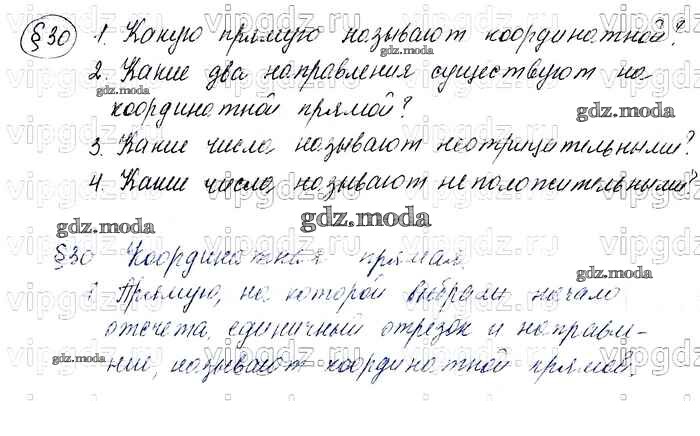 §30 1. Какую прямую называют координатной?
2. Какие два направления существуют на
координатной прямой?
3. Какие числа называют неотрицательными?
4. Какие числа называют неположительными?
§30 Координатная прямая.
1. Прямую, на которой выбрали начало
отсчета, единичный отрезок и направле-
ние, называют координатной прямой.
gdz.moda
vipgdz.ru